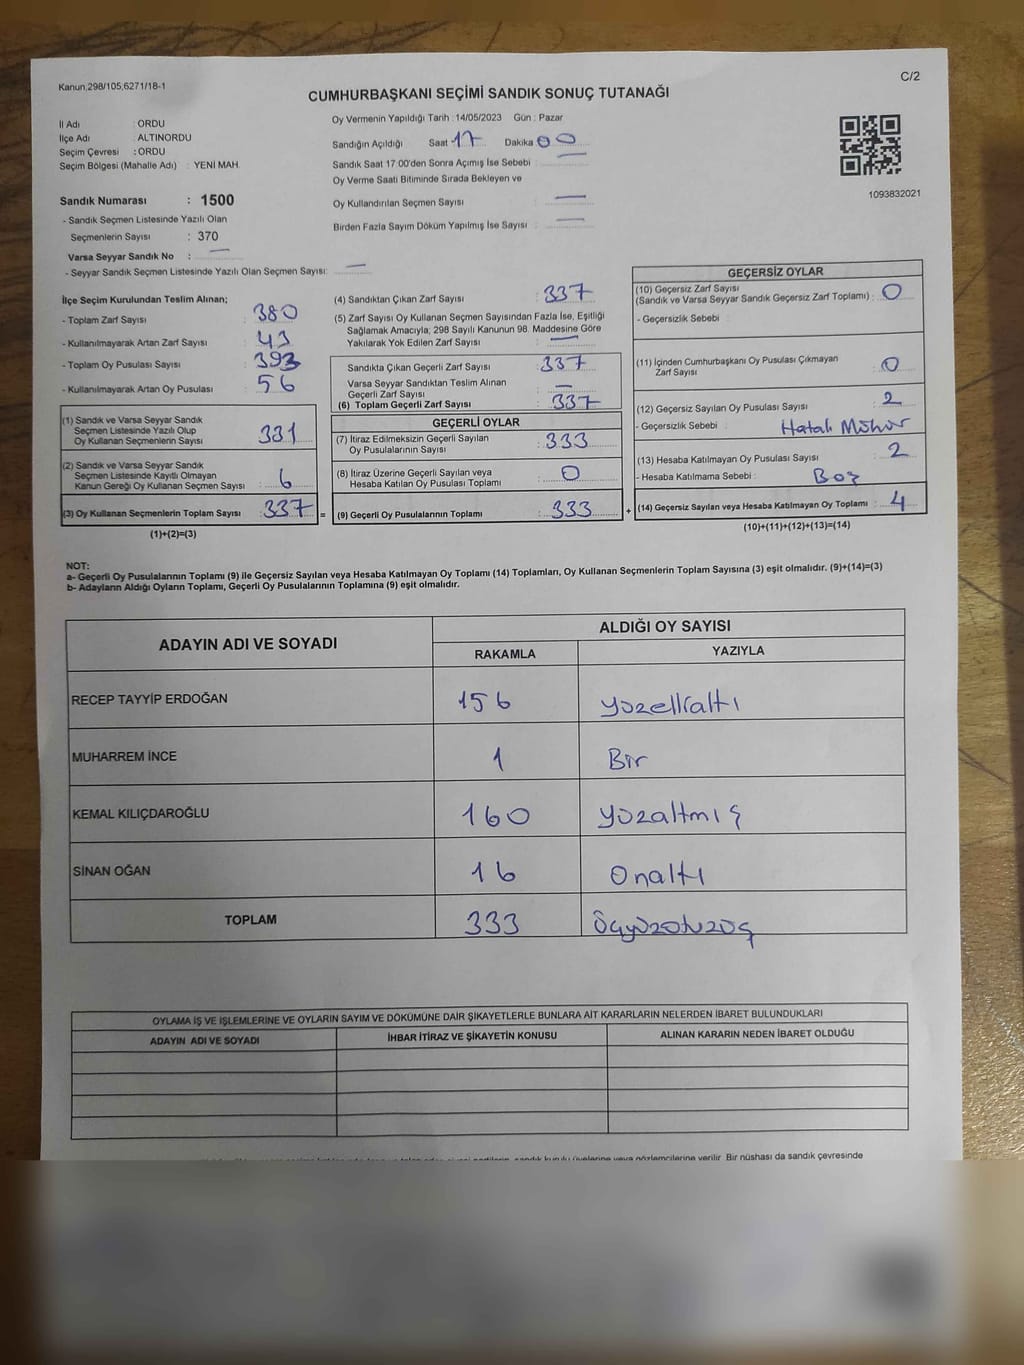 Kanun,298/105,6271/18-1
C/2
CUMHURBAŞKANI SEÇİMİ SANDIK SONUÇ TUTANAĞI
İl Adı : ORDU
İlçe Adı : ALTINORDU
Seçim Çevresi : ORDU
Seçim Bölgesi (Mahalle Adı) : YENİ MAH.
Oy Vermenin Yapıldığı Tarih : 14/05/2023 Gün : Pazar
Sandığın Açıldığı Saat 17 Dakika 00
Sandık Saat 17:00'den Sonra Açılmış İse Sebebi : —
Oy Verme Saati Bitiminde Sırada Bekleyen ve
Oy Kullandırılan Seçmen Sayısı : —
Birden Fazla Sayım Döküm Yapılmış İse Sayısı : —
1093832021
Sandık Numarası : 1500
- Sandık Seçmen Listesinde Yazılı Olan
Seçmenlerin Sayısı : 370
Varsa Seyyar Sandık No : —
- Seyyar Sandık Seçmen Listesinde Yazılı Olan Seçmen Sayısı: —
İlçe Seçim Kurulundan Teslim Alınan;
- Toplam Zarf Sayısı : 380
- Kullanılmayarak Artan Zarf Sayısı : 43
- Toplam Oy Pusulası Sayısı : 393
- Kullanılmayarak Artan Oy Pusulası : 56
(1) Sandık ve Varsa Seyyar Sandık
Seçmen Listesinde Yazılı Olup
Oy Kullanan Seçmenlerin Sayısı : 331
(2) Sandık ve Varsa Seyyar Sandık
Seçmen Listesinde Kayıtlı Olmayan
Kanun Gereği Oy Kullanan Seçmen Sayısı : 6
(3) Oy Kullanan Seçmenlerin Toplam Sayısı : 337 =
(1)+(2)=(3)
(4) Sandıktan Çıkan Zarf Sayısı : 337
(5) Zarf Sayısı Oy Kullanan Seçmen Sayısından Fazla İse, Eşitliği
Sağlamak Amacıyla; 298 Sayılı Kanunun 98. Maddesine Göre
Yakılarak Yok Edilen Zarf Sayısı : —
Sandıkta Çıkan Geçerli Zarf Sayısı : 337
Varsa Seyyar Sandıktan Teslim Alınan
Geçerli Zarf Sayısı : —
(6) Toplam Geçerli Zarf Sayısı : 337
GEÇERLİ OYLAR
(7) İtiraz Edilmeksizin Geçerli Sayılan
Oy Pusulalarının Sayısı : 333
(8) İtiraz Üzerine Geçerli Sayılan veya
Hesaba Katılan Oy Pusulası Toplamı : 0
(9) Geçerli Oy Pusulalarının Toplamı : 333 +
GEÇERSİZ OYLAR
(10) Geçersiz Zarf Sayısı
(Sandık ve Varsa Seyyar Sandık Geçersiz Zarf Toplamı) : 0
- Geçersizlik Sebebi :
(11) İçinden Cumhurbaşkanı Oy Pusulası Çıkmayan
Zarf Sayısı : 0
(12) Geçersiz Sayılan Oy Pusulası Sayısı : 2
- Geçersizlik Sebebi : Hatalı Mühür
(13) Hesaba Katılmayan Oy Pusulası Sayısı : 2
- Hesaba Katılmama Sebebi : Boş
(14) Geçersiz Sayılan veya Hesaba Katılmayan Oy Toplamı : 4
(10)+(11)+(12)+(13)=(14)
NOT:
a- Geçerli Oy Pusulalarının Toplamı (9) ile Geçersiz Sayılan veya Hesaba Katılmayan Oy Toplamı (14) Toplamları, Oy Kullanan Seçmenlerin Toplam Sayısına (3) eşit olmalıdır. (9)+(14)=(3)
b- Adayların Aldığı Oyların Toplamı, Geçerli Oy Pusulalarının Toplamına (9) eşit olmalıdır.
ADAYIN ADI VE SOYADI ALDIĞI OY SAYISI
RAKAMLA YAZIYLA
RECEP TAYYİP ERDOĞAN 156 yüzellialtı
MUHARREM İNCE 1 Bir
KEMAL KILIÇDAROĞLU 160 yüzaltmış
SİNAN OĞAN 16 Onaltı
TOPLAM 333 üçyüzotuzüç
OYLAMA İŞ VE İŞLEMLERİNE VE OYLARIN SAYIM VE DÖKÜMÜNE DAİR ŞİKAYETLERLE BUNLARA AİT KARARLARIN NELERDEN İBARET BULUNDUKLARI
ADAYIN ADI VE SOYADI İHBAR İTİRAZ VE ŞİKAYETİN KONUSU ALINAN KARARIN NEDEN İBARET OLDUĞU
sandık kurulu üyelerine veya gözlemcilerine verilir. Bir nüshası da sandık çevresinde